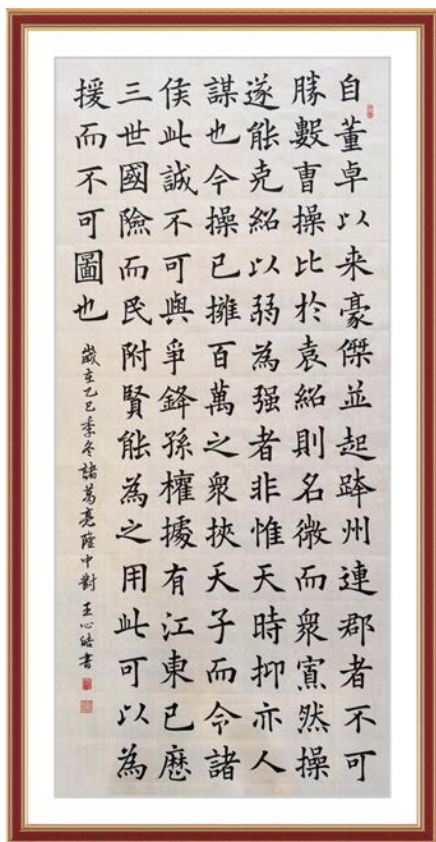 自董卓以来豪傑並起跨州連郡者不可
勝數曹操比於袁紹則名微而衆寡然操
遂能克紹以弱為强者非惟天時抑亦人
謀也今操已擁百萬之衆挾天子而令諸
侯此誠不可與爭鋒孫權據有江東已歷
三世國險而民附賢能為之用此可以為
援而不可圖也
歲在乙巳季冬諸葛亮隆中對 王心皓書